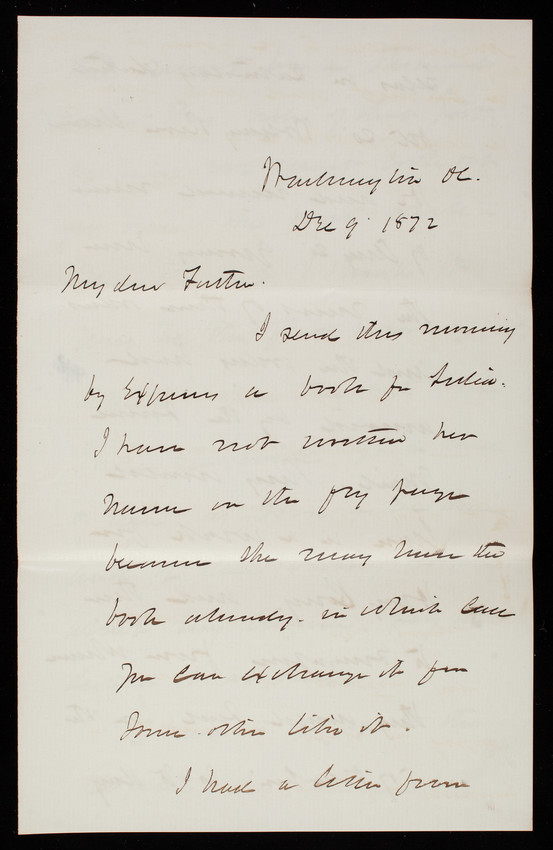 Washington DC.
Dec 9. 1872
My dear Father.
I send this morning
by Express a book for Julia.
I have not written her
name on the fly page
because she may have the
book already. in which case
you can exchange it for
some other like it.
I had a letter from